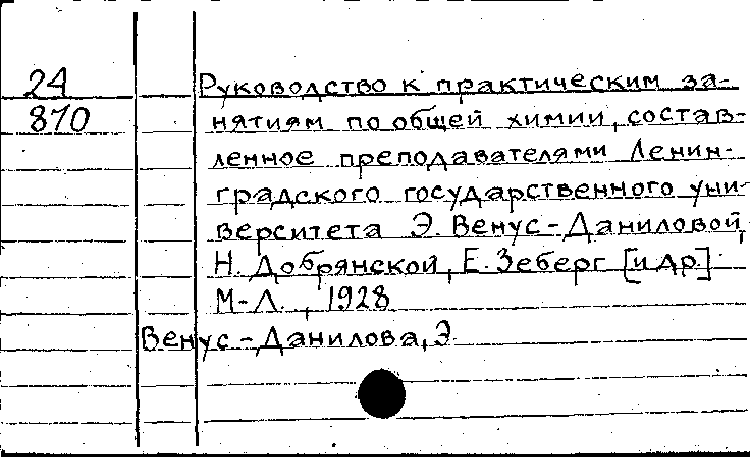 24
810
Руководство к практическим за-
нятиям по общей химии, состав-
ленное преподавателями Ленин-
градского государственного уни-
верситета Э. Венус-Даниловой,
Н. Добрянской, Е. Зеберг [и др.]
М-Л., 1928
Венус-Данилова, Э.